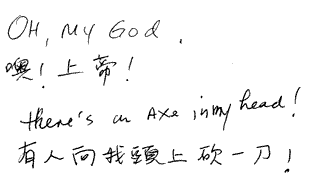 OH, MY GOD.
噢！上帝！
there's an AXE in my head!
有人向我頭上砍一刀！